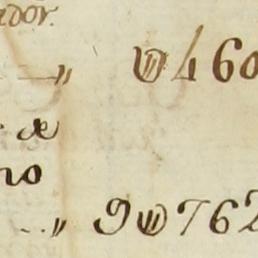 ador.
— " U 460
æ
no
.. " 9U762